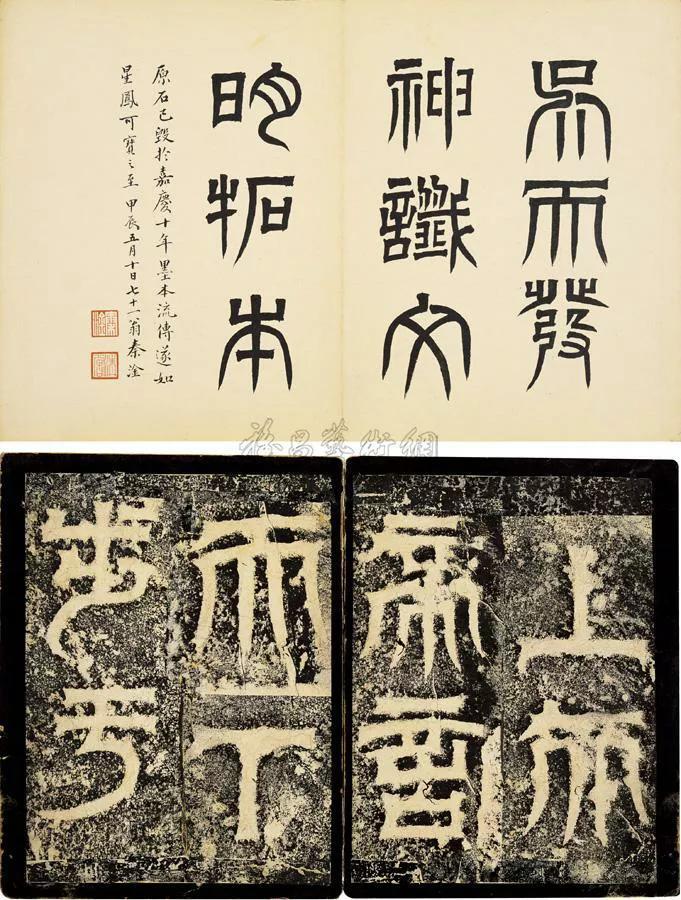 吳天發
神讖文
明拓本
原石已毀於嘉慶十年墨本流傳遂如
星鳳可寶之至 甲辰五月十日七十一翁秦淦
上天
帝言
天下
步于